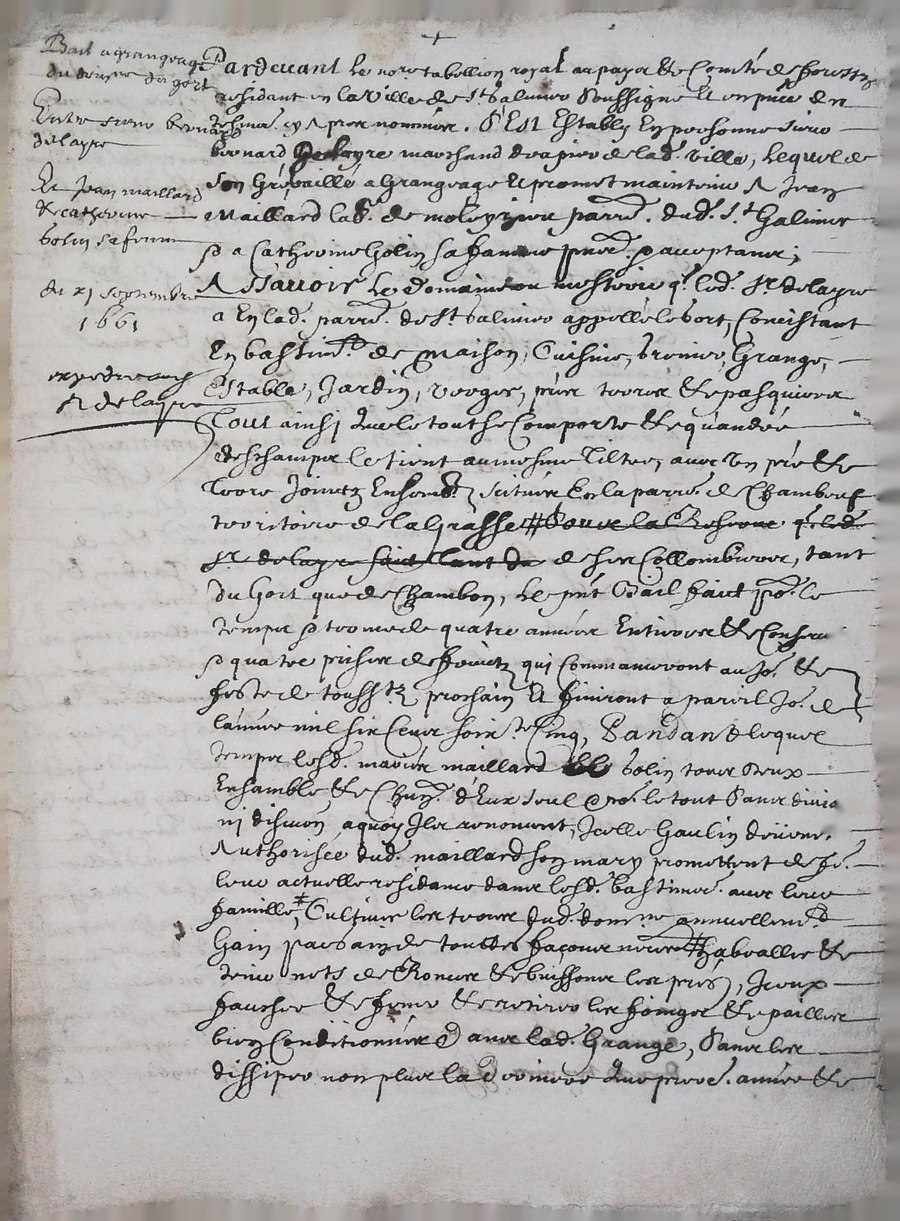 Bail a grangeage
du domeyne du gort
Entre sieur bernard
delayre
Et Jean maillard
& catherine
golin sa femme
du xi septembre
1661
expedie aud.
sr delayre
Pardevant le notre tabellion royal au pays & Comté de forestz
residant en la ville de st Galmier soussigné Et en pnce des
tesmoi. cy apres nommés. S'Est Estably En personne sieur
bernard delayre marchand drapier de lad. ville, lequel de
son gré baille a Grangeage Et promet maintenir A Jean
Maillard lab. de parre. dud. st Galmier
& a Catherine Golin sa famme pnts. & acceptans,
A Sçavoir le domaine ou mesterie q. led. sr. delayre
a En lad. parre. de st Galmier appellé le Gort, Concistant
En bastimts. de maison, Cuisine, Grenier, Grange,
Estable, Jardin, verger, prés terres & pasquiers
Tout ainsi que le tout se Comporte &
deschamps le tient au mesme tiltre, avec Un pré &
Terre Joinctz Ensemble, scitués En la parre. de Chambeuf
territoire de la Grasse # Sauve la Reserve q. led.
sr. delayre faict tant du des Collombiers, tant
du Gort que de Chambon, le pnt Bail faict po. le
temps & terme de quatre années Entieres & Consecu
& quatre prises de fruictz qui Commanceront au jo. &
feste de toussts. prochain Et finiront a pareil Jo. de
l'année mil six Cens soixte Cinq, Pandant lequel
temps lesd. mariés maillard & Golin tous deux
Ensemble & Chun. d'Eux seul & po. le tout sans divis
ni discuon a quoy Ils renoncent, Icelle Gaulin deüem.
Authorisee dud. maillard son mary promettent de fe.
leur actuelle residance dans lesd. bastimens avec leur
famille, # Cultiver les terres dud. domne. annuellemt.
Gain par sain de touttes façons # labeallis &
tenir nets de Ronces & buissons les prés, Iceux
faucher & fener & retirer les foings & pailles
bien Conditionnés dans lad. Grange, Sans les
dissiper non plus la derniere que pred. année &